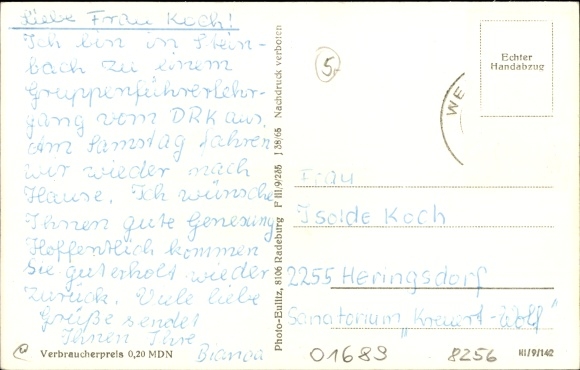 Liebe Frau Koch!
Ich bin in Stein-
bach zu einem
Gruppenführerlehr-
gang vom DRK aus.
Am Samstag fahren
wir wieder nach
Hause. Ich wünsche
Ihnen gute Genesung
Hoffentlich kommen
Sie gut erholt wieder
zurück. Viele liebe
Grüße sendet
Ihnen Ihre
Bianca
Verbraucherpreis 0,20 MDN
Photo-Eulitz, 8106 Radeburg P III/9/285 J 38/65 Nachdruck verboten
5,-
WE
Echter
Handabzug
Frau
Isolde Koch
2255 Heringsdorf
Sanatorium "-Wolf"
01689
8256
III/9/142